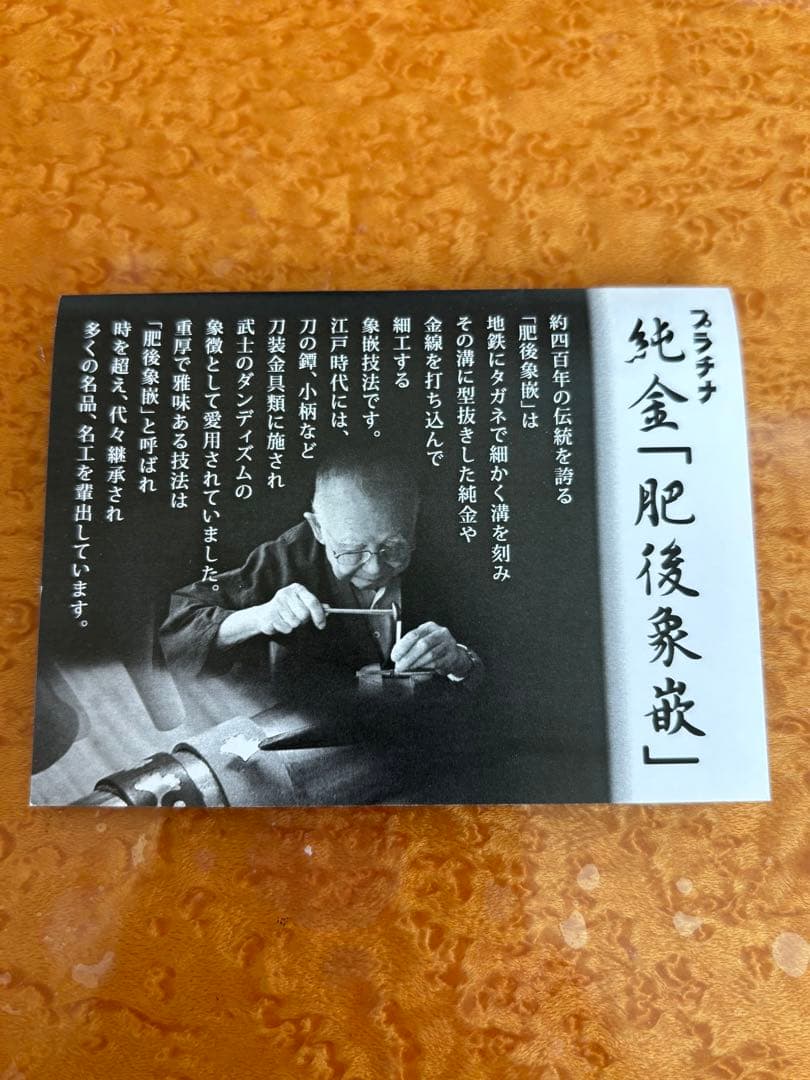 プラチナ
純金「肥後象嵌」
約四百年の伝統を誇る
「肥後象嵌」は
地鉄にタガネで細かく溝を刻み
その溝に型抜きした純金や
金線を打ち込んで
細工する
象嵌技法です。
江戸時代には、
刀の鐔、小柄など
刀装金具類に施され
武士のダンディズムの
象徴として愛用されていました。
重厚で雅味ある技法は
「肥後象嵌」と呼ばれ
時を超え、代々継承され
多くの名品、名工を輩出しています。